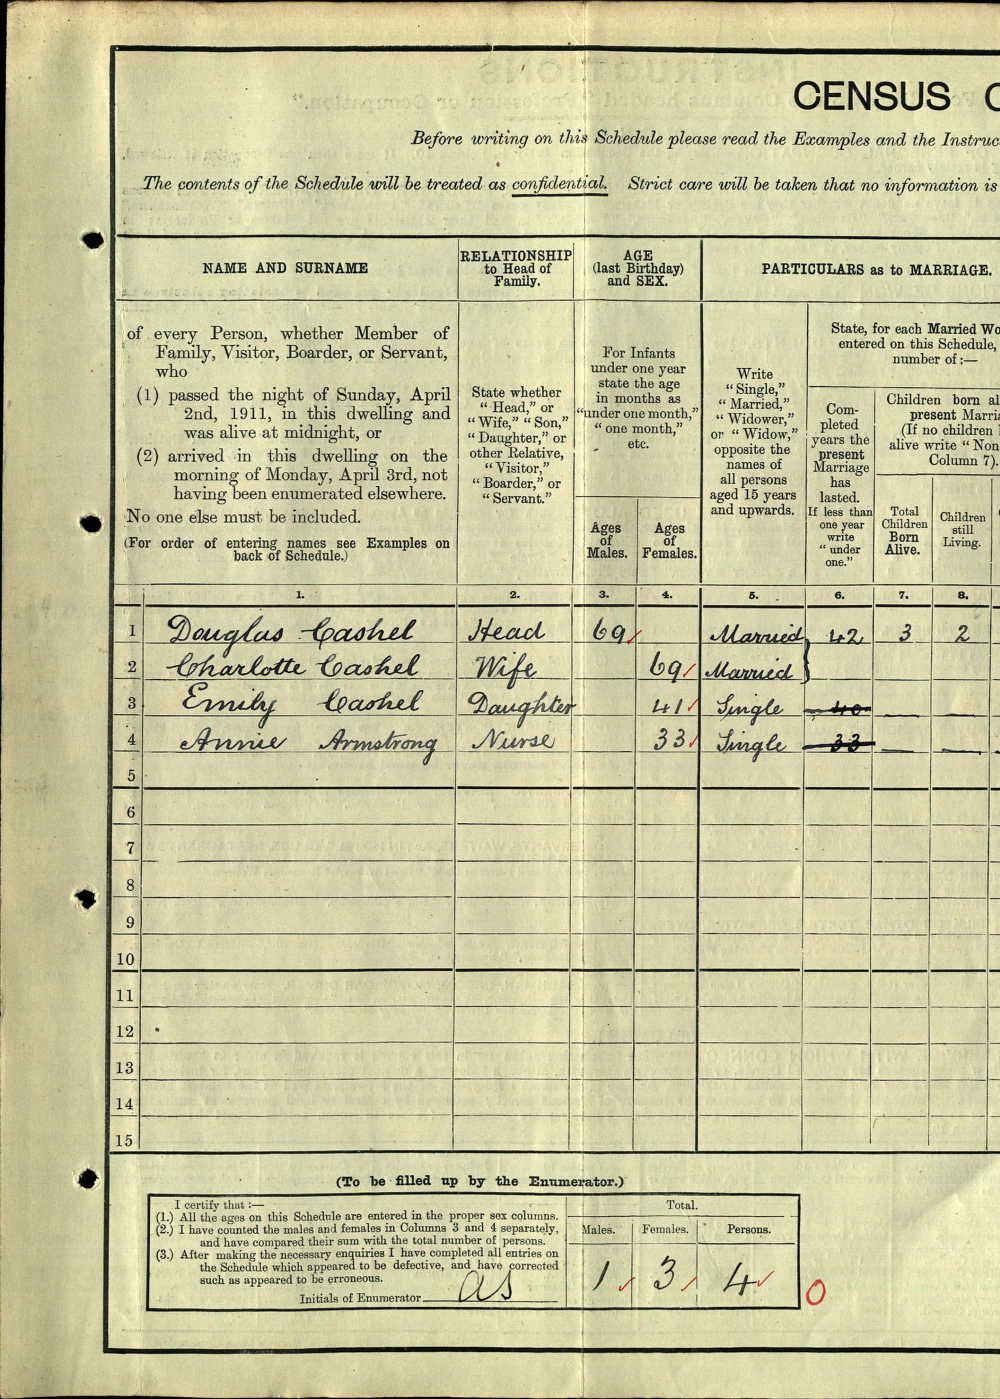 CENSUS
Before writing on this Schedule please read the Examples and the Instruc
The contents of the Schedule will be treated as confidential. Strict care will be taken that no information is
NAME AND SURNAME
RELATIONSHIP
to Head of
Family.
AGE
(last Birthday)
and SEX.
PARTICULARS as to MARRIAGE.
of every Person, whether Member of
Family, Visitor, Boarder, or Servant,
who
(1) passed the night of Sunday, April
2nd, 1911, in this dwelling and
was alive at midnight, or
(2) arrived in this dwelling on the
morning of Monday, April 3rd, not
having been enumerated elsewhere.
No one else must be included.
(For order of entering names see Examples on
back of Schedule.)
State whether
"Head," or
"Wife," "Son,"
"Daughter," or
other Relative,
"Visitor,"
"Boarder," or
"Servant."
For Infants
under one year
state the age
in months as
"under one month,"
"one month,"
etc.
Ages
of
Males.
Ages
of
Females.
Write
"Single,"
"Married,"
"Widower,"
or "Widow,"
opposite the
names of
all persons
aged 15 years
and upwards.
State, for each Married Wo
entered on this Schedule,
number of:—
Com-
pleted
years the
present
Marriage
has
lasted.
If less than
one year
write
"under
one."
Children born al
present Marri
(If no children
alive write "Non
Column 7).
Total
Children
Born
Alive.
Children
still
Living.
1. 2. 3. 4. 5. 6. 7. 8.
1 Douglas Cashel Head 69 Married 42 3 2
2 Charlotte Cashel Wife 69 Married
3 Emily Cashel Daughter 41 Single 40 — —
4 Annie Armstrong Nurse 33 Single 33 — —
5
6
7
8
9
10
11
12
13
14
15
(To be filled up by the Enumerator.)
I certify that:—
(1.) All the ages on this Schedule are entered in the proper sex columns.
(2.) I have counted the males and females in Columns 3 and 4 separately,
and have compared their sum with the total number of persons.
(3.) After making the necessary enquiries I have completed all entries on
the Schedule which appeared to be defective, and have corrected
such as appeared to be erroneous.
Initials of Enumerator as
Total.
Males. Females. Persons.
1 3 4 0